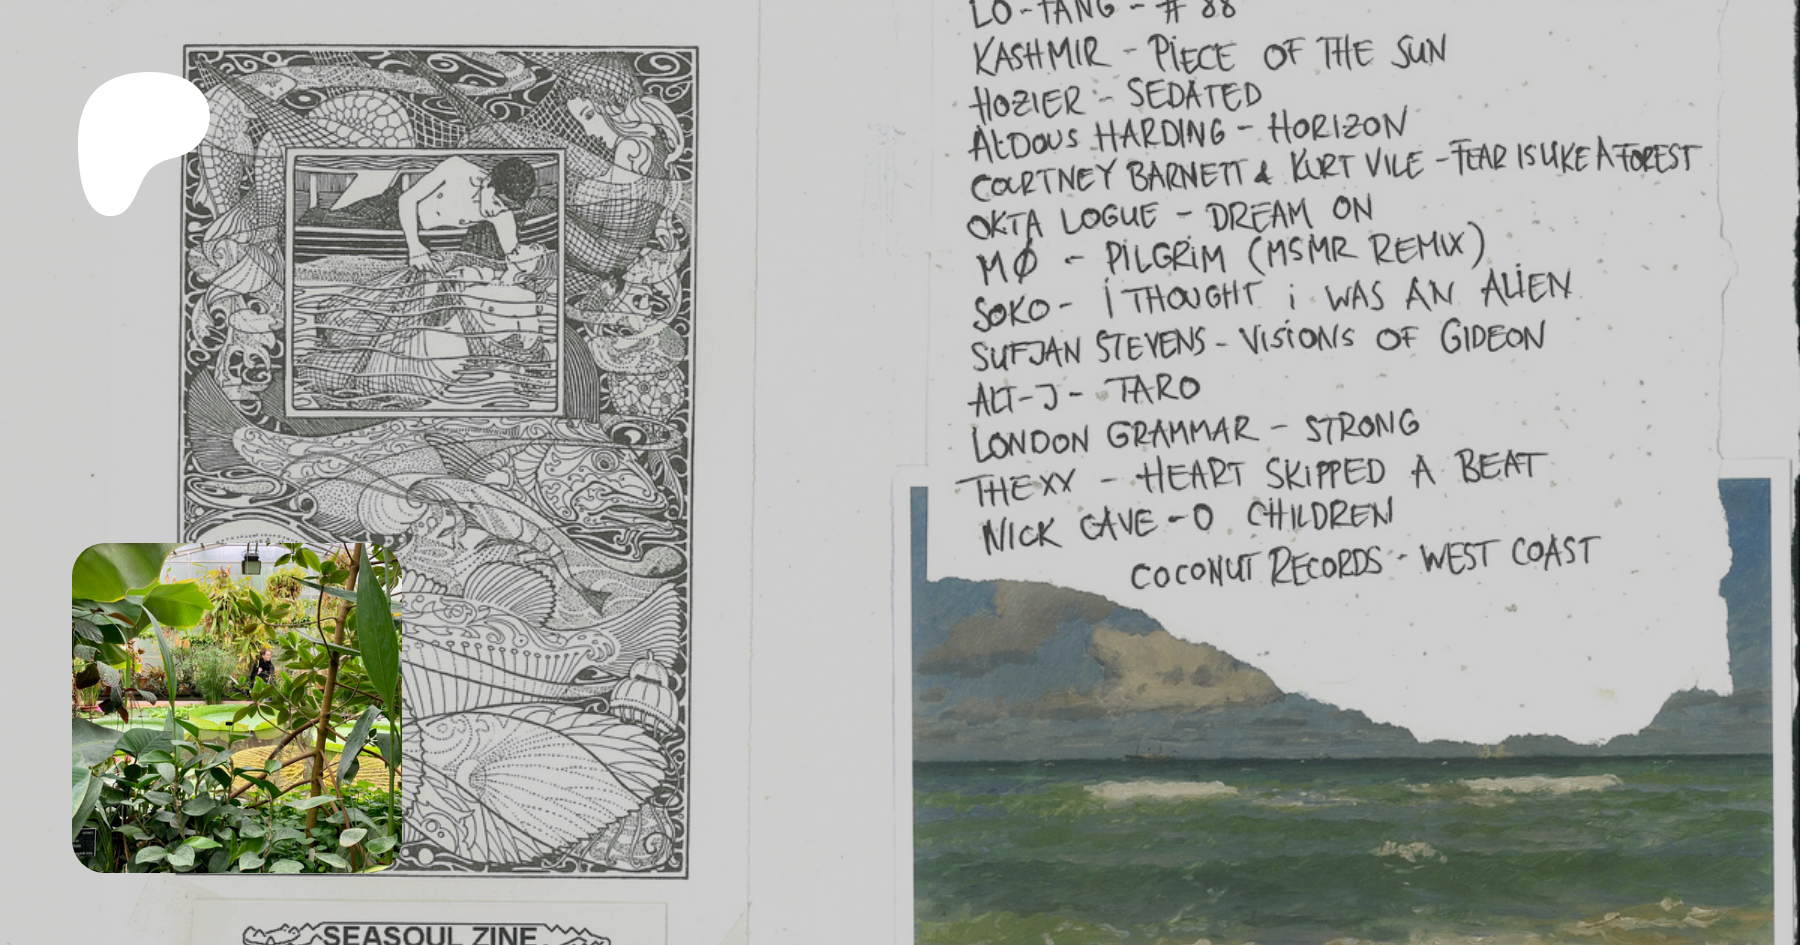 LO-FANG - #88
KASHMIR - PIECE OF THE SUN
HOZIER - SEDATED
ALDOUS HARDING - HORIZON
COURTNEY BARNETT & KURT VILE - FEAR IS LIKE A FOREST
OKTA LOGUE - DREAM ON
MØ - PILGRIM (MSMR REMIX)
SOKO - I THOUGHT I WAS AN ALIEN
SUFJAN STEVENS - VISIONS OF GIDEON
ALT-J - TARO
LONDON GRAMMAR - STRONG
THE XX - HEART SKIPPED A BEAT
NICK CAVE - O CHILDREN
COCONUT RECORDS - WEST COAST
SEASOUL ZINE